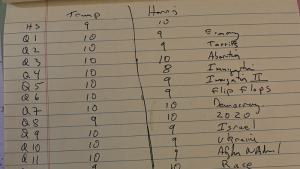 Trump Harris
HS 9 10
Q1 10 9 Economy
Q2 10 9 Tariffs
Q3 10 10 Abortion
Q4 10 8 Immigration
Q5 10 9 Immigration II
Q6 10 9 Flip Flops
Q7 10 10 Democracy
Q8 9 10 2020
Q9 10 9 Israel
Q10 10 9 Ukraine
Q11 10 9 Afghan
10 Race